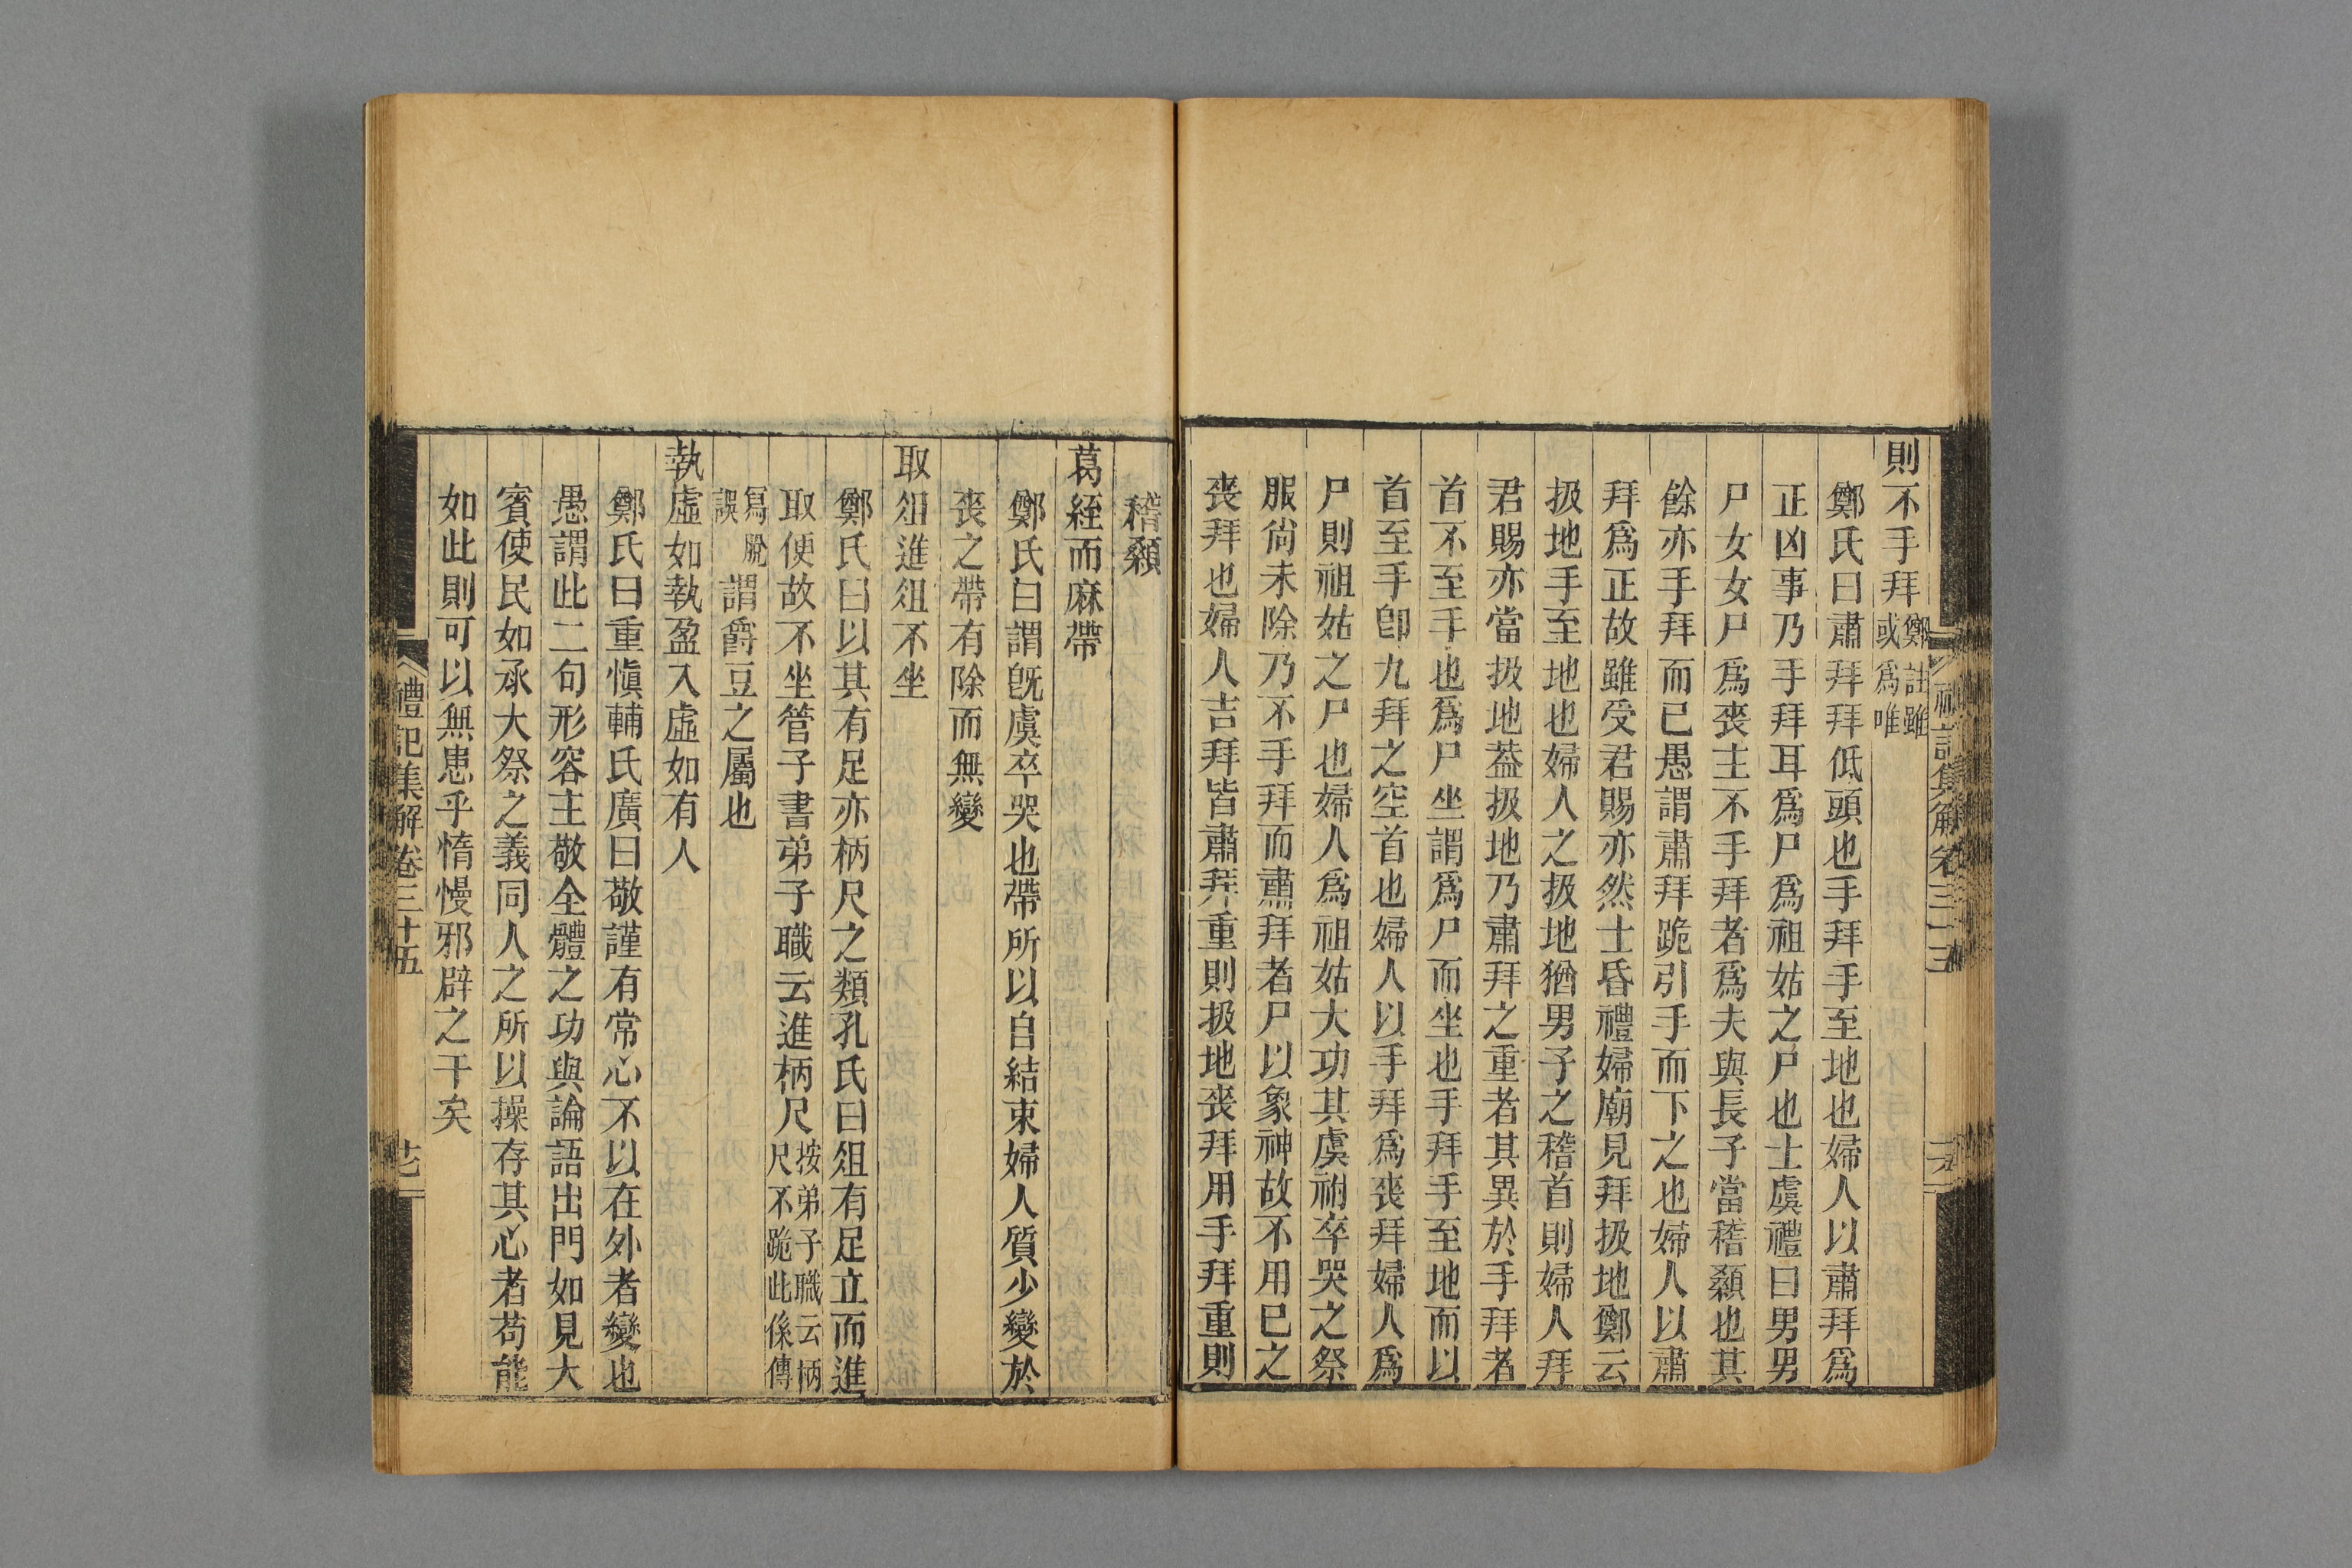 則不手拜鄭註雖或爲唯
鄭氏曰肅拜拜低頭也手拜手至地也婦人以肅拜爲
正凶事乃手拜耳爲尸爲祖姑之尸也士虞禮曰男男
尸女女尸爲喪主不手拜者爲夫與長子當稽顙也其
餘亦手拜而已愚謂肅拜跪引手而下之也婦人以肅
拜爲正故雖受君賜亦然士昏禮婦廟見拜扱地鄭云
扱地手至地也婦人之扱地猶男子之稽首則婦人拜
君賜亦當扱地葢扱地乃肅拜之重者其異於手拜者
首不至手也爲尸坐謂爲尸而坐也手拜手至地而以
首至手卽九拜之空首也婦人以手拜爲喪拜婦人爲
尸則祖姑之尸也婦人爲祖姑大功其虞祔卒哭之祭
服尙未除乃不手拜而肅拜者尸以象神故不用已之
喪拜也婦人吉拜皆肅拜重則扱地喪拜用手拜重則
禮記集解卷三十五
稽顙
葛絰而麻帶
鄭氏曰謂旣虞卒哭也帶所以自結束婦人質少變於
喪之帶有除而無變
取俎進俎不坐
鄭氏曰以其有足亦柄尺之類孔氏曰俎有足立而進
取便故不坐管子書弟子職云進柄尺按弟子職云柄尺不跪此係傳
寫脫誤謂爵豆之屬也
執虛如執盈入虛如有人
鄭氏曰重愼輔氏廣曰敬謹有常心不以在外者變也
愚謂此二句形容主敬全體之功與論語出門如見大
賓使民如承大祭之義同人之所以操存其心者苟能
如此則可以無患乎惰慢邪辟之干矣
禮記集解卷三十五